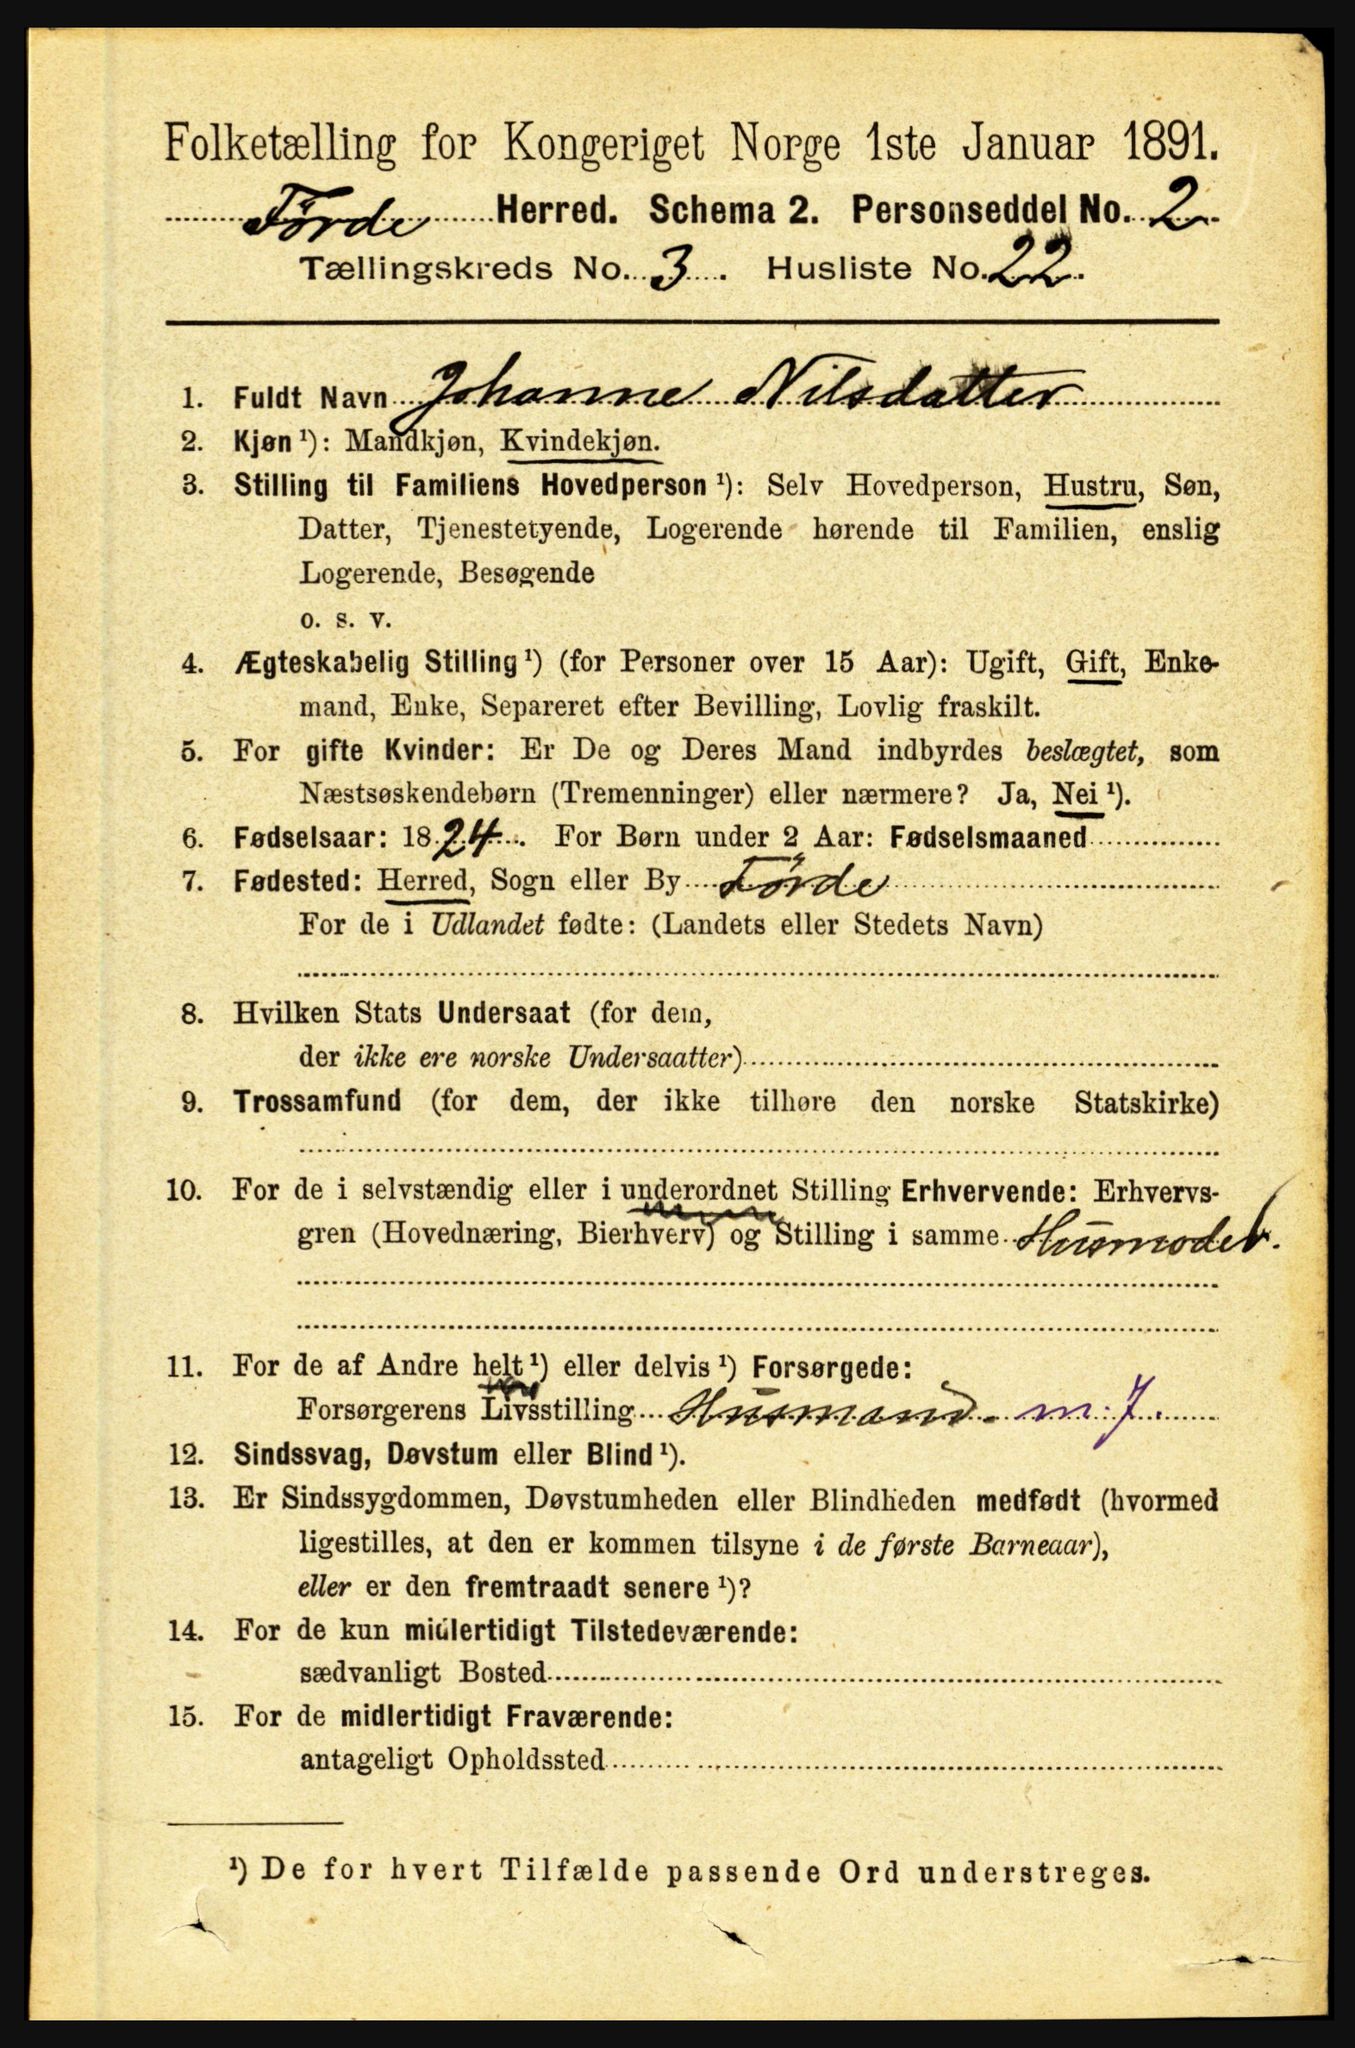 Folketælling for Kongeriget Norge 1ste Januar 1891.
Førde Herred. Schema 2. Personseddel No. 2
Tællingskreds No. 3. Husliste No. 22.
1. Fuldt Navn Johanne Nilsdatter
2. Kjøn ¹): Mandkjøn, Kvindekjøn.
3. Stilling til Familiens Hovedperson ¹): Selv Hovedperson, Hustru, Søn,
Datter, Tjenestetyende, Logerende hørende til Familien, enslig
Logerende, Besøgende
o. s. v.
4. Ægteskabelig Stilling ¹) (for Personer over 15 Aar): Ugift, Gift, Enke-
mand, Enke, Separeret efter Bevilling, Lovlig fraskilt.
5. For gifte Kvinder: Er De og Deres Mand indbyrdes beslægtet, som
Næstsøskendebørn (Tremenninger) eller nærmere? Ja, Nei ¹).
6. Fødselsaar: 1824. For Børn under 2 Aar: Fødselsmaaned
7. Fødested: Herred, Sogn eller By Førde
For de i Udlandet fødte: (Landets eller Stedets Navn)
8. Hvilken Stats Undersaat (for dem,
der ikke ere norske Undersaatter)
9. Trossamfund (for dem, der ikke tilhøre den norske Statskirke)
10. For de i selvstændig eller i underordnet Stilling Erhvervende: Erhvervs-
gren (Hovednæring, Bierhverv) og Stilling i samme Husmoder.
11. For de af Andre helt ¹) eller delvis ¹) Forsørgede:
Forsørgerens Livsstilling Husmand. m. J.
12. Sindssvag, Døvstum eller Blind ¹).
13. Er Sindssygdommen, Døvstumheden eller Blindheden medfødt (hvormed
ligestilles, at den er kommen tilsyne i de første Barneaar),
eller er den fremtraadt senere ¹)?
14. For de kun midlertidigt Tilstedeværende:
sædvanligt Bosted
15. For de midlertidigt Fraværende:
antageligt Opholdssted
¹) De for hvert Tilfælde passende Ord understreges.